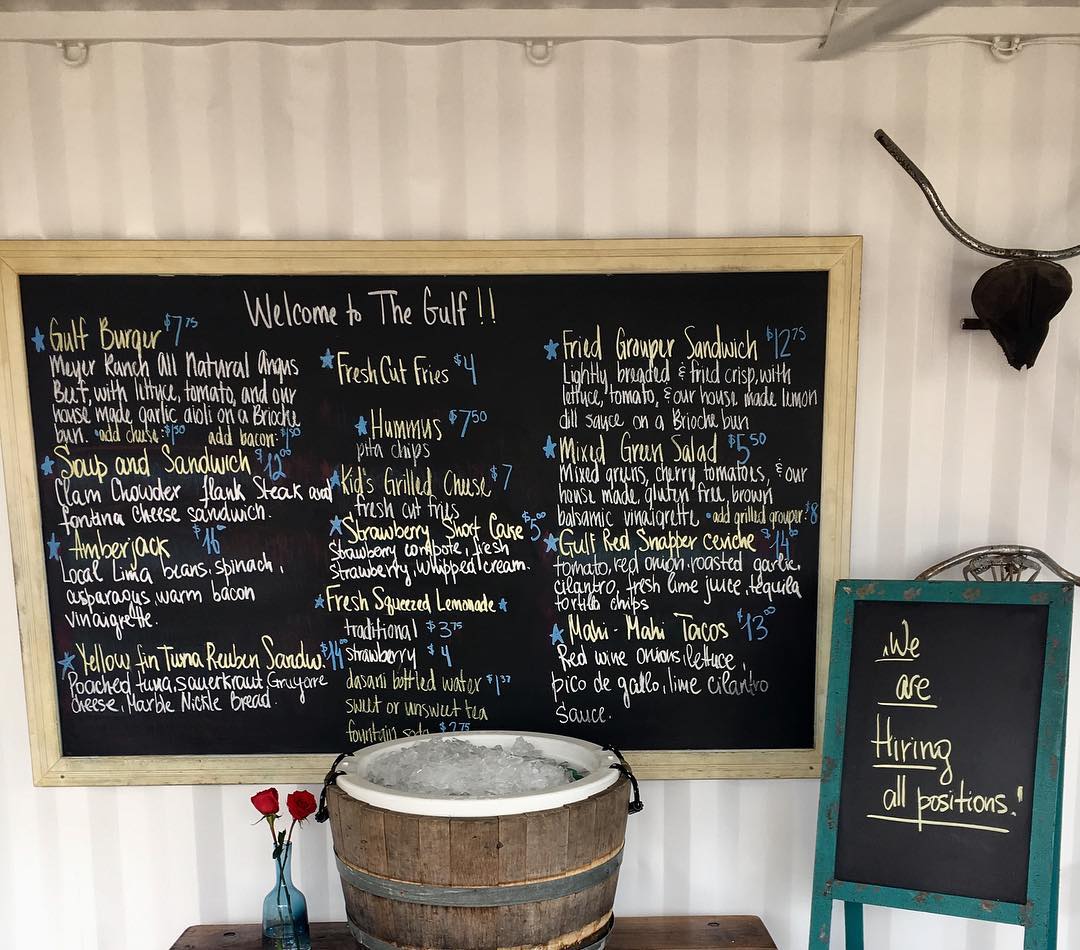 Welcome to The Gulf!!
Gulf Burger $7 75
Meyer Ranch All Natural Angus
Beef, with lettuce, tomato, and our
house made garlic aioli on a Brioche
bun. •add cheese: $1 50 add bacon: $1 50
Soup and Sandwich $12 00
Clam Chowder flank Steak and
fontina cheese sandwich.
Amberjack $16
Local Lima beans, spinach,
asparagus, warm bacon
vinaigrette.
Yellow fin Tuna Reuben Sandw. $14
Poached tuna, sauerkraut, Gruyere
cheese, Marble Nickle Bread.
Fresh Cut Fries $4
Hummus $7 50
pita chips
Kid's Grilled Cheese $7
fresh cut fries
Strawberry Short Cake $5 00
Strawberry compote, fresh
strawberry, whipped cream.
Fresh Squeezed Lemonade
traditional $3 75
strawberry $4
dasani bottled water
sweet or unsweet tea
fountain soda $2 75
Fried Grouper Sandwich $12 75
Lightly breaded & fried crisp, with
lettuce, tomato, & our house made lemon
dill sauce on a Brioche bun
Mixed Green Salad $5 50
Mixed greens, cherry tomatoes, & our
house made, gluten free, brown
balsamic vinaigrette •add grilled grouper: $8
Gulf Red Snapper ceviche $14 00
tomato, red onion, roasted garlic,
cilantro, fresh lime juice, tequila
tortilla chips
Mahi-Mahi Tacos $13 00
Red wine onions, lettuce,
pico de gallo, lime cilantro
Sauce.
We
are
Hiring
all positions!